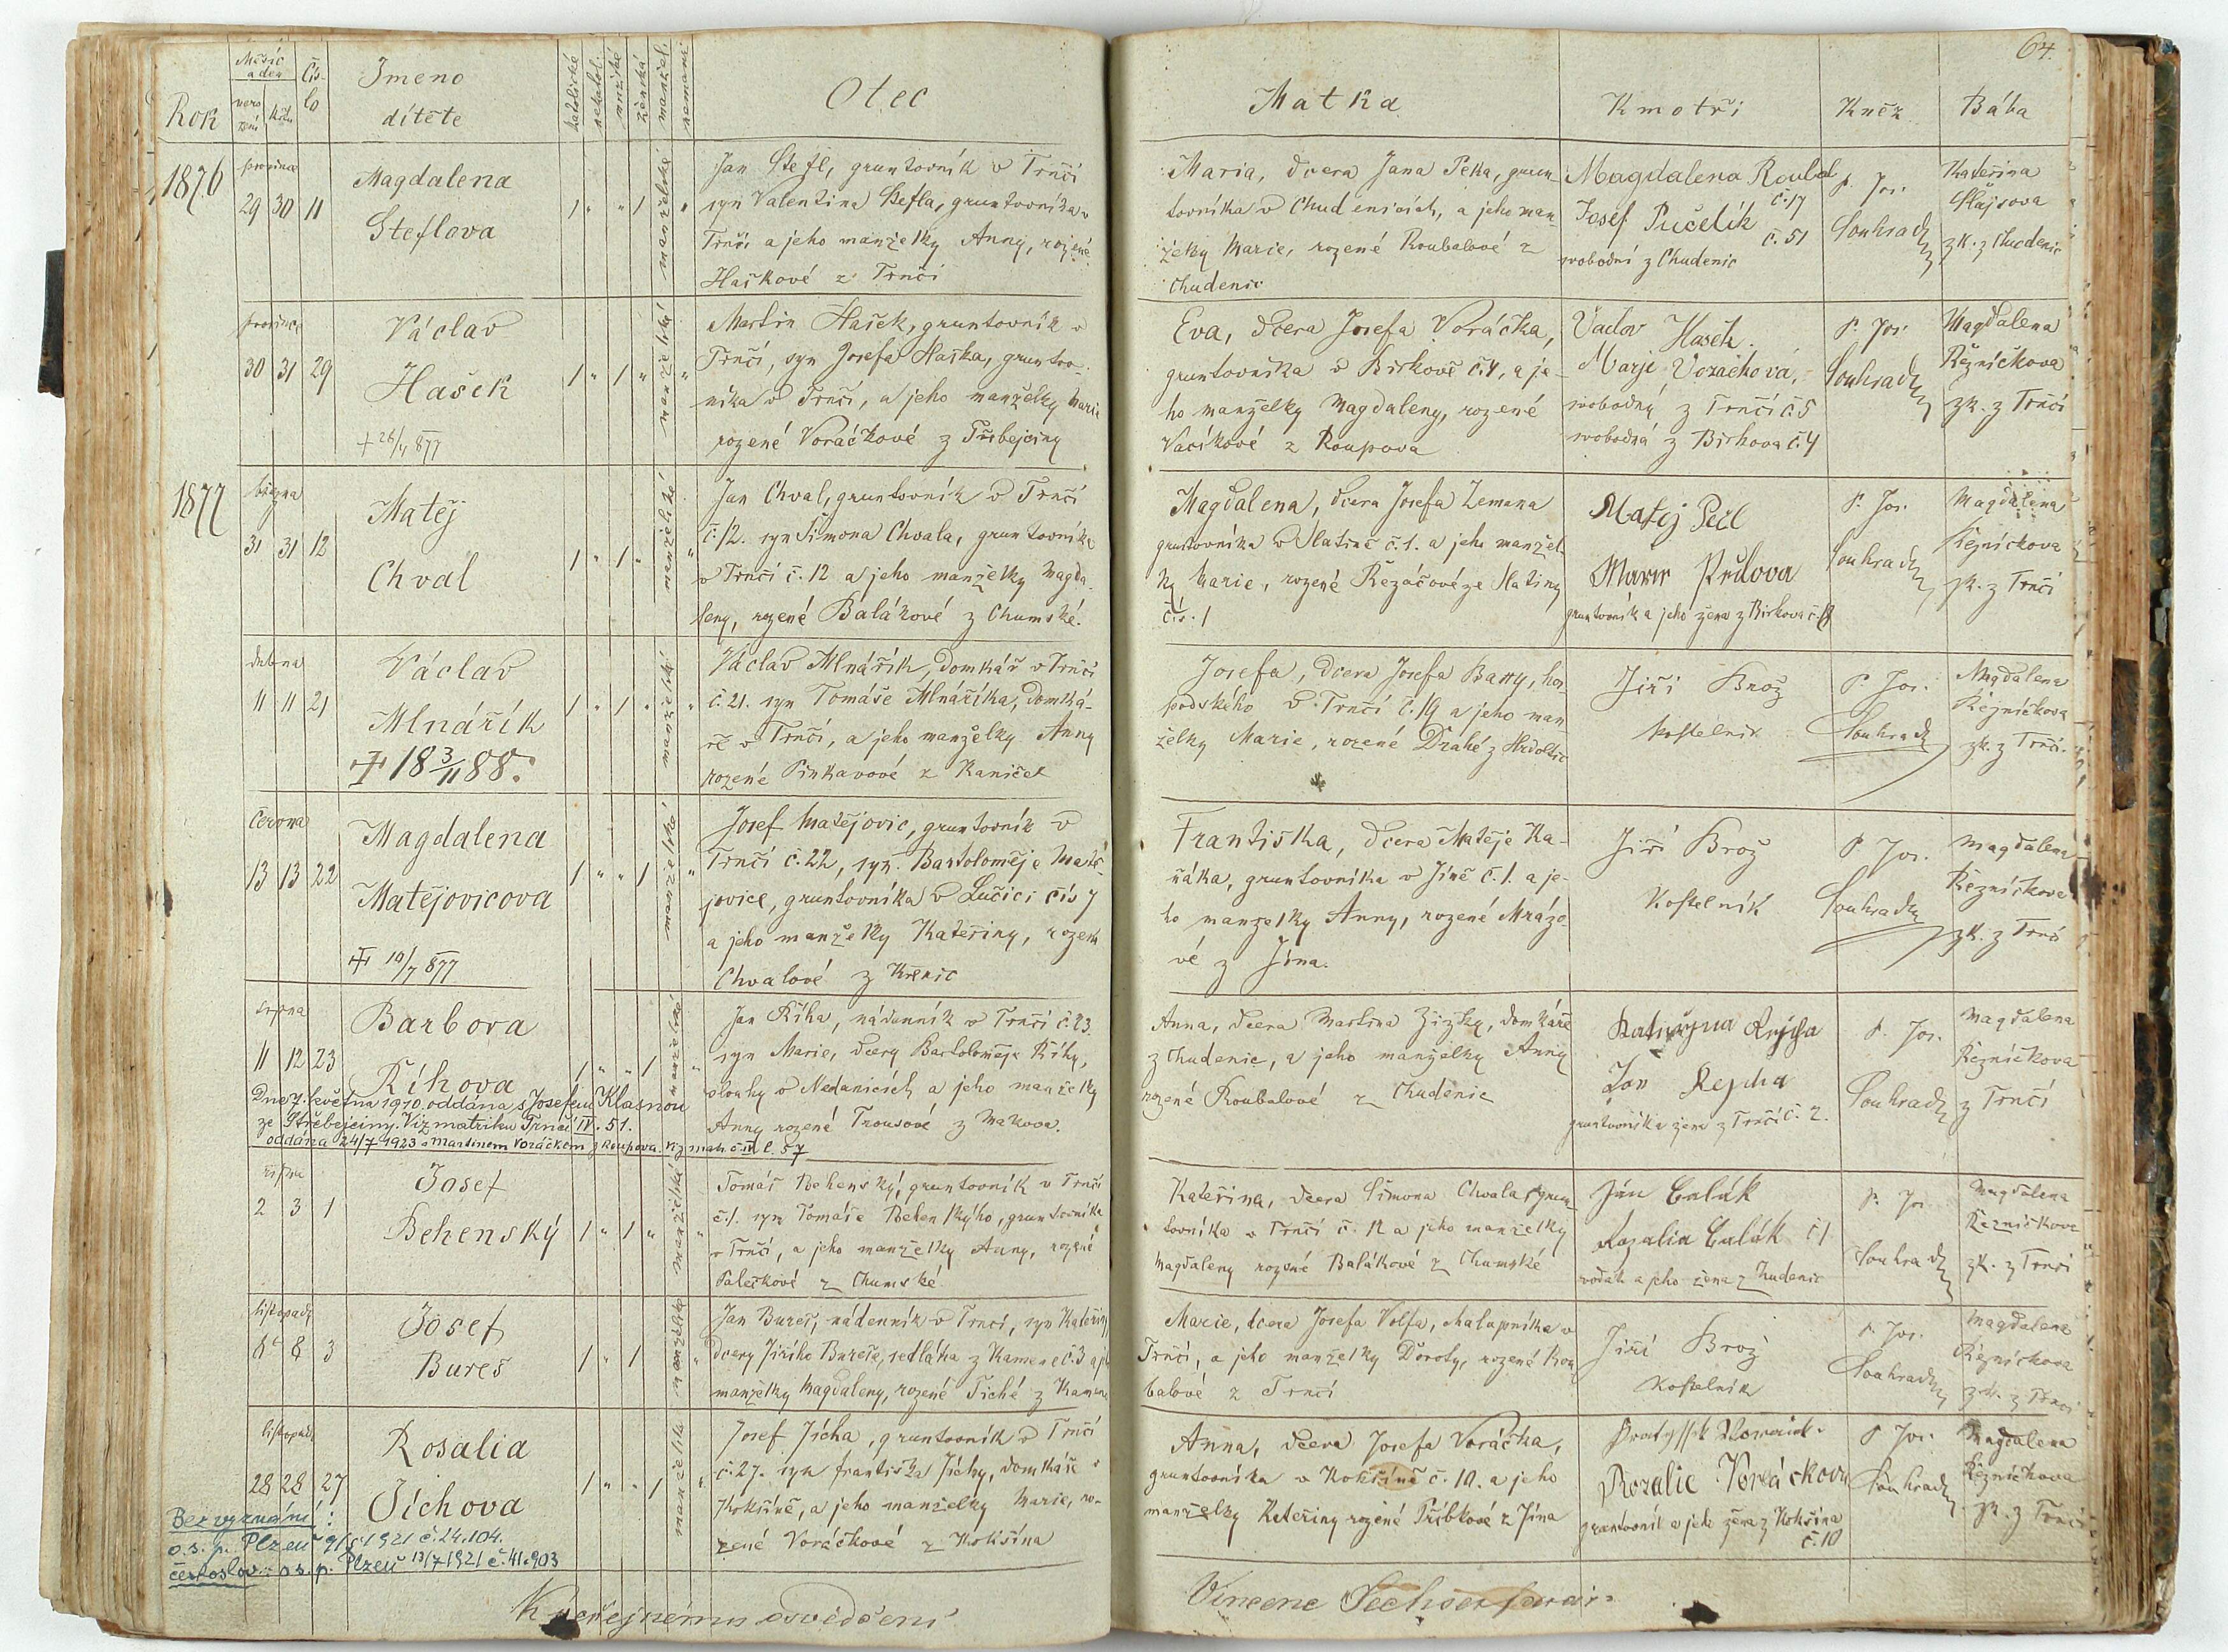 64.
Rok
Měsíc
a den
naro
zení
křtu
Čís-
lo
Imeno
dítěte
katolické
nekatol.
mužské
ženské
manžel.
nemanž.
Otec
Matka
Kmotři
Kněz
Bába
1876
prosince
29 30 11
Magdalena
Steflova
1 " " 1 manželské "
Jan Stefl, gruntovník v Trnčí
syn Valentina Stefla, gruntovníka v
Trnčí a jeho manželky Anny, rozené
Haškové z Trnčí
Maria, dcera Jana Peka, grun-
tovníka v Chudenicích, a jeho man-
želky Marie, rozené Roubalové z
Chudenic
Magdalena Roubal
č. 17
Josef Pučelík
č. 51
svobodní z Chudenic
P. Jos.
Souhrada
Kateřina
zk. z Chudenic
prosince
30 31 29
Václav
Hašek
+ 26/4 877
1 " 1 " manželské "
Martin Hašek, gruntovník v
Trnčí, syn Josefa Haška, grunto-
níka v Trnčí, a jeho manželky Marie
rozené Voráčkové z Třebejciny
Eva, dcera Josefa Voráčka,
gruntovníka v Birkově č. 4, a je-
ho manželky Magdaleny, rozené
Vacíkové z Roupova
Vaclav Hašek.
Marje Voračková,
svobodný z Trnčí č 5
svobodná z Birkova č. 4
P. Jos.
Souhrada
Magdalena
Řezníčkova
zk. z Trnčí
1877
března
31 31 12
Matěj
Chval
1 " 1 " manželské "
Jan Chval, gruntovník v Trnčí
č. 12. syn Šimona Chvala, gruntovníka
v Trnčí č. 12 a jeho manželky Magda-
leny, rozené Balákové z Chumské.
Magdalena, dcera Josefa Zemana
gruntovníka v Slatině č. 1. a jeho manžel-
ky Marie, rozené Řezáčové ze Slatiny
čís. 1
Matěj Pecl
Marie Peclova
gruntovník a jeho žena z Birkova
P. Jos.
Souhrada
Magdalena
Řezníčkova
zk. z Trnčí
dubna
11 11 21
Václav
Mlnářík
+ 18 3/11 88.
1 " 1 " manželské "
Václav Mlnářík, domkář v Trnčí
č. 21. syn Tomáše Mlnáříka, domká-
ře v Trnčí, a jeho manželky Anny
rozené Pinkavové z Kaniček
Josefa, dcera Josefa Barty, hos
podského v Trnčí č. 14 a jeho man
želky Marie, rozené Drahé z
Jiří Brož
kostelník
P. Jos.
Souhrada
Magdalena
Řezníčkova
zk. z Trnčí.
června
13 13 22
Magdalena
Matějovicova
+ 10/7 877
1 " " 1 manželské "
Josef Matějovic, gruntovník v
Trnčí č. 22, syn Bartoloměje Matě-
jovice, gruntovníka v Lučici čís 7
a jeho manželky Kateřiny, rozené
Chvalové z Křenic
Františka, dcera Matěje Ka-
ňáka, gruntovníka v Jíně č. 1. a je-
ho manželky Anny, rozené Mrázo-
vé z Jína.
Jiří Brož
Kostelník
P. Jos.
Souhrada
Magdalena
Řezníčkova
zk. z Trnčí
srpna
11 12 23
Barbora
Říhova
1 " " 1 manželské "
Dne 7. května 1910. oddána s Josefem Klasnou
ze Střebejciny. Viz matriku Trnčí IV. 51.
oddána 24/7 1923 s Martinem Voráčkem z Roupova. Viz mat. č. III l. 57
Jan Říha, nádenník v Trnčí č. 23.
syn Marie, dcery Bartoloměje Říhy,
slouhy v Nedanicích a jeho manželky
Anny rozené Trousové z Makova.
Anna, dcera Martina Zizky, domkáře
z Chudenic, a jeho manželky Anny
rozené Roubalové z Chudenic
Kateřyna
Jan Rejcha
gruntovníka žena z Trnčí č. 2.
P. Jos.
Souhrada
Magdalena
Řezníčkova
z Trnčí
října
2 3 1
Josef
Behenský
1 " 1 " manželské "
Tomáš Behenský, gruntovník v Trnčí
č. 1. syn Tomáše Behenského, gruntovníka
v Trnčí, a jeho manželky Anny, rozené
Palečkové z Chumské
Kateřina, dcera Šimona Chvala, grun-
tovníka v Trnčí č. 12 a jeho manželky
Magdaleny rozené Balákové z Chumské
Ján Calák
Rozalia Calák č 1
a jeho žena z Chudenic
P. Jos
Souhrada
Magdalena
Řezníčkova
zk. z Trnčí
listopadu
8 8 3
Josef
Bureš
1 " 1 manželské "
Jan Bureš, nádenník v Trnčí, syn Kateřiny
dcery Jiřího Bureše, sedláka z Kamene č. 3 a je
manželky Magdaleny, rozené Tiché z Kamene
Marie, dcera Josefa Volfa, chalupníka v
Trnčí, a jeho manželky Doroty, rozené Rou
balové z Trnčí
Jiří Brož
Kostelník
P. Jos.
Souhrada
Magdalena
Řezníčkova
zk. z Trnčí
listopadu
28 28 27
Rosalia
Jíchova
1 " " 1 manželské "
Bez vyznání:
o. s. p. Plzeň 9/5 1921 č. 24.104.
českoslov.: o. s. p. Plzeň 13/7 1921 č. 41.903
Josef Jícha, gruntovník v Trnčí
č. 27. syn Františka Jíchy, domkáře v
Kokšíně, a jeho manželky Marie, ro-
zené Voráčkové z Kokšína
Anna, dcera Josefa Voráčka,
gruntovníka v Kokšíně č. 10. a jeho
manželky Kateřiny rozené Přibkové z Jína
Rozalie Voráčkova
gruntovník a jeho žena z Kokšína
č. 10
P. Jos.
Souhrada
Magdalena
Řezníčkova
zk. z Trnčí
K veřejnému osvědčení
Vincenc Sechser farář